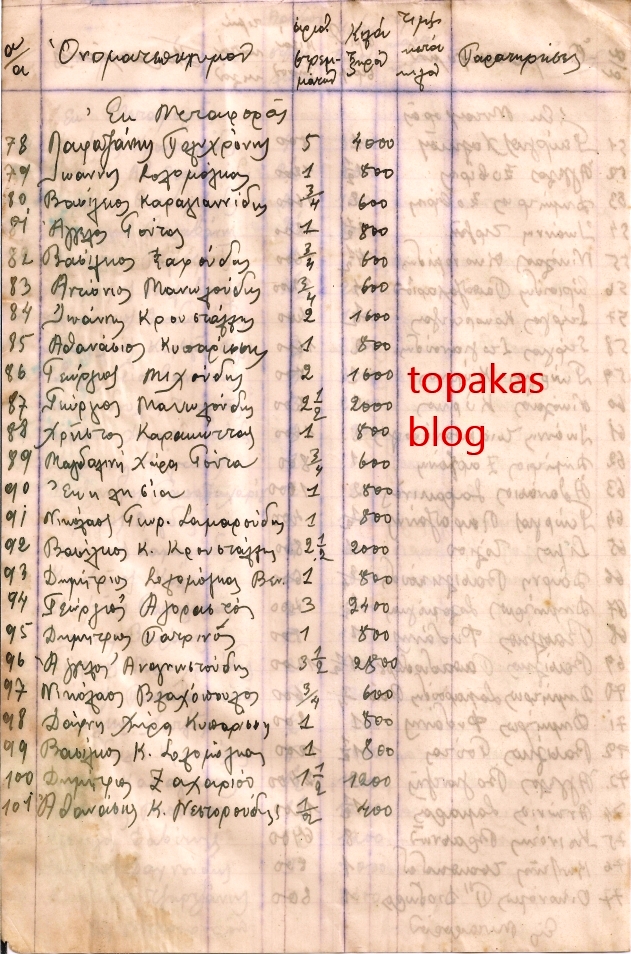 α/α Ὀνοματεπώνυμον ἀριθ. στρεμμάτων Κιλὰ Ξηρὰ Τιμὴ κατὰ Παρατηρήσεις
Ἐκ Μεταφορᾶς
78 Πολυχρόνης 5 4000
79 Ἰωάννης Σολομόγκας 1 800
80 Βασίλειος Καραγιαννίδης 3/4 600
81 Ἄγγελος Γούτας 1 800
82 Βασίλειος 3/4 600
83 Ἀντώνιος Μανωλούδης 3/4 600
84 Ἰωάννης Κρουστάλλης 2 1600
85 Ἀθανάσιος Κυπαρίσσης 1 800
86 Γεώργιος Μιχούδης 2 1600
87 Γεώργιος Μανωλούδης 2 1/2 2000
88 Χρῆστος Καρακώττας 1 800
89 Μαγδαληνὴ Χήρα Γούτα 3/4 600
90 Ἐκκλησία 1 800
91 Νικόλαος Γεωρ. Σαμαρούδης 1 800
92 Βασίλειος Κ. Κρουστάλλης 2 1/2 2000
93 Δημήτριος Σολομόγκας Βεν. 1 800
94 Γεώργιος Ἀγοραστός 3 2400
95 Δημήτριος Πατρινός 1 800
96 Ἄγγελος Ἀναγνωστούδης 3 1/2 2800
97 Νικόλαος Βλαχόπουλος 3/4 600
98 Δάφνη Χήρα Κυπαρίσση 1 800
99 Βασίλειος Κ. Σολομόγκας 1 800
100 Δημήτριος Ζαχαρίου 1 1/2 1200
101 Ἀθανάσιος Κ. Νεστορούδης 1/2 400
topakas
blog